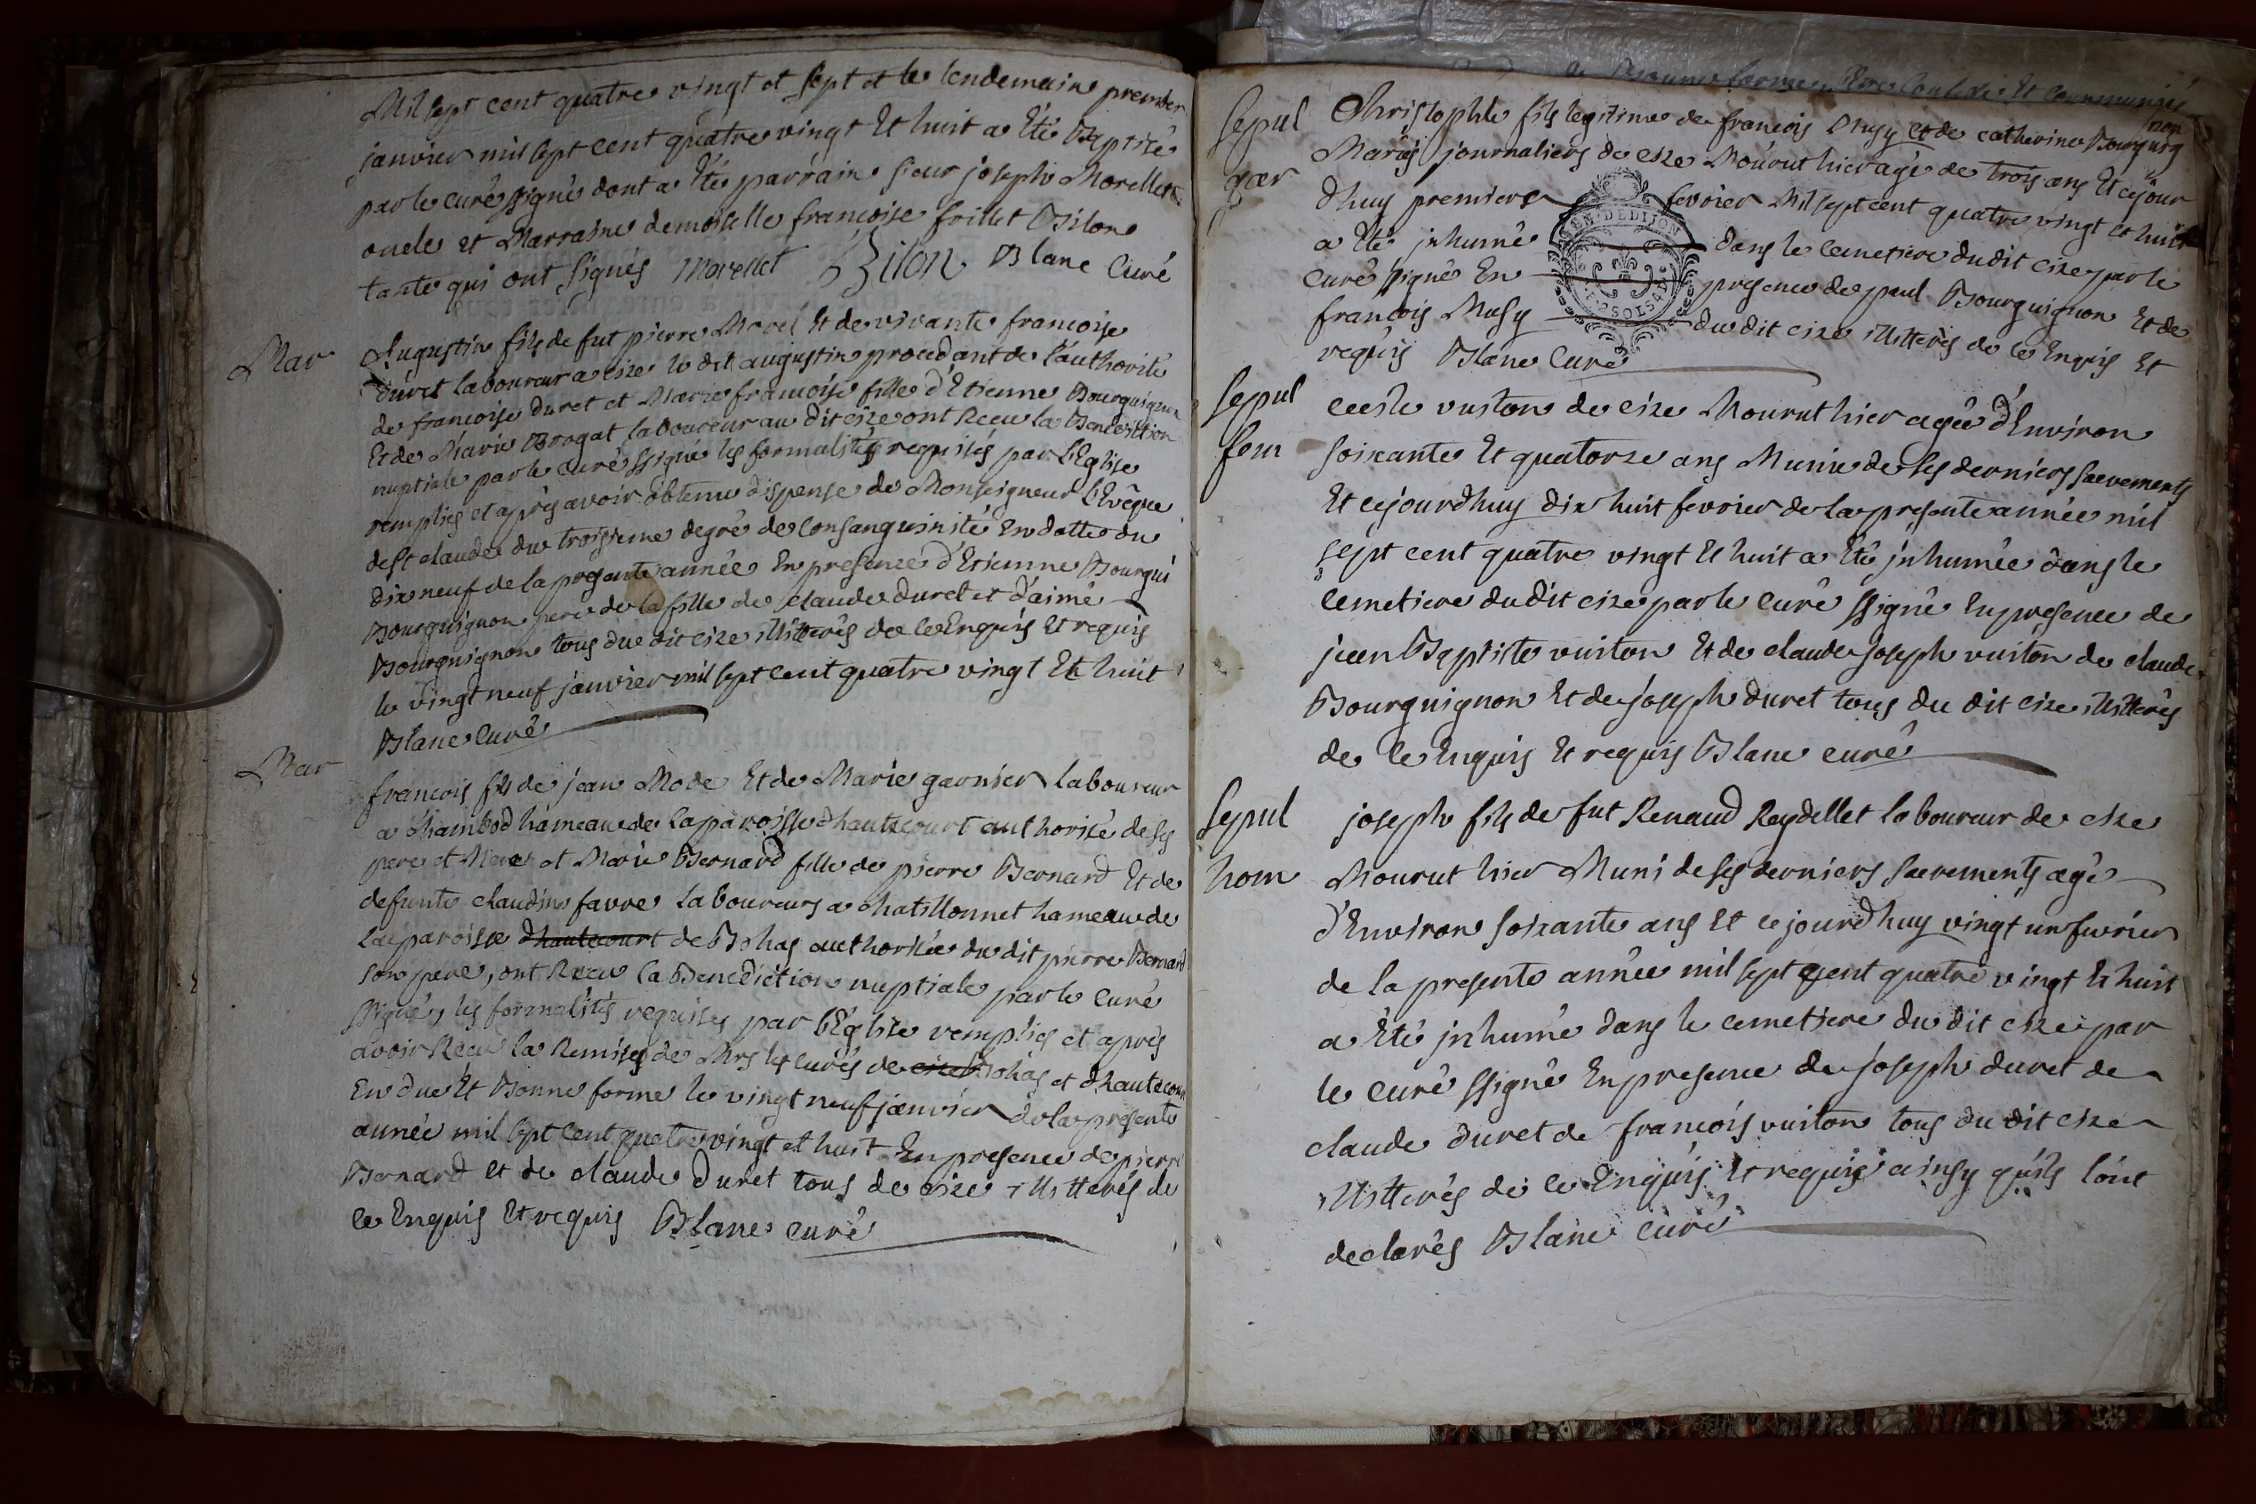 Mil sept cent quatre vingt et sept et le lendemain premier
janvier mil sept cent quatre vingt Et huit a Eté Baptisé
par le curé ssigné dont a Eté parrain sieur joseph Morellet
oncle et Marraine demoiselle francoise frillet Bilon
tante qui ont signés Morellet Bilon Blanc Curé
Mar
Augustin fils de fut pierre Morel Et de vivante francoise
duret laboureur a cize le dit augustin procedant de l'authorité
de francoise duret et Marie francoise fille d'Etienne Bourguignon
Et de Marie Brogat laboureur au dit cize ont Receu la Benediction
nuptiale par le curé ssigné les formalités requises par l'Eglise
remplies et après avoir obtenu dispense de Monseigneur l'Evêque
de St claude du troisieme degré de consanguinité En datte du
dix neuf de la presente année En presence d'Etienne Bourgui
Bourguignon pere de la fille de claude duret et d'aimé
Bourguignon tous du dit cize illitterés de ce Enquis Et requis
le vingt neuf janvier mil sept cent quatre vingt Et huit
Blanc Curé
Mar
francois fils de jean Mode Et de Marie garnier laboureur
a Chambod hameau de la paroisse d'hautecourt authorisé de ses
pere et Mere et Marie Bernard fille de pierre Bernard Et de
defunte claudine favre laboureurs a Chatillonnet hameau de
la paroisse dhautecourt de Bohas authorisée du dit pierre Bernard
son pere, ont Receu la Benediction nuptiale par le curé
ssigné, les formalités requises par l'Eglise remplies et après
avoir Receu la Remise de Mrs les curés de cize Bohas et d'hautecour
En due Et Bonne forme le vingt neuf janvier de la presente
année mil sept cent quatre vingt et huit En presence de pierre
Bernard et de claude duret tous de cize illitterés de
ce Enquis Et requis Blanc curé
Sepul
gar
Christophle fils legitime de francois Musy et de catherine Bourguig
non
Mariés journaliers de cize Mourut hier agé de trois ans Et cejour
dhuy premier fevrier Mil sept cent quatre vingt et huit
a Eté jnhumé dans le cemetiere du dit cize par le
curé ssigné En presence de paul Bourguignon Et de
francois Musy du dit cize illitterés de ce Enquis Et
requis Blanc Curé
GEN. DE DIJON
Sepul
fem
vuiton de cize Mourut hier agée d'Environ
soixante Et quatorze ans Munie de ses derniers sacrements
Et cejourdhuy dix huit fevrier de la presente année mil
sept cent quatre vingt Et huit a Eté jnhumée dans le
cemetiere du dit cize par le curé ssigné En presence de
jean Baptiste vuiton Et de claude joseph vuiton de claude
Bourguignon Et de joseph duret tous du dit cize illitterés
de ce Enquis Et requis Blanc curé
Sepul
hom
joseph fils de fut Renaud Reydellet laboureur de cize
Mourut hier Muni de ses derniers sacrements agé
d'Environ soixante ans Et cejourdhuy vingt un fevrier
de la presente année mil sept cent quatre vingt Et huit
a Eté jnhumé dans le cemetiere du dit cize par
le curé ssigné En presence de joseph duret de
claude duret de francois vuiton tous du dit cize
illitterés de ce Enquis Et requis ainsy qu'ils l'ont
declarés Blanc Curé